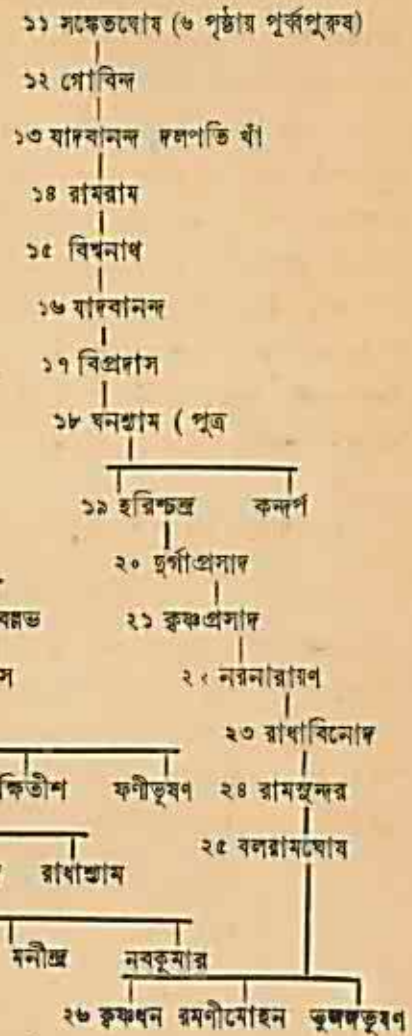 ১১ সঙ্কেতঘোষ (৬ পৃষ্ঠায় পূর্ব্বপুরুষ)
১২ গোবিন্দ
১৩ যাদবানন্দ দলপতি খাঁ
১৪ রামরাম
১৫ বিশ্বনাথ
১৬ যাদবানন্দ
১৭ বিপ্রদাস
১৮ ঘনশ্যাম ( পুত্র
১৯ হরিশ্চন্দ্র কন্দর্প
২০ দুর্গাপ্রসাদ
বল্লভ ২১ কৃষ্ণপ্রসাদ
স ২২ নরনারায়ণ
২৩ রাধাবিনোদ
ক্ষিতীশ ফণীভূষণ ২৪ রামসুন্দর
২৫ বলরামঘোষ
রাধাশ্যাম
মনীন্দ্র নবকুমার
২৬ কৃষ্ণধন রমণীমোহন ভুজঙ্গভূষণ